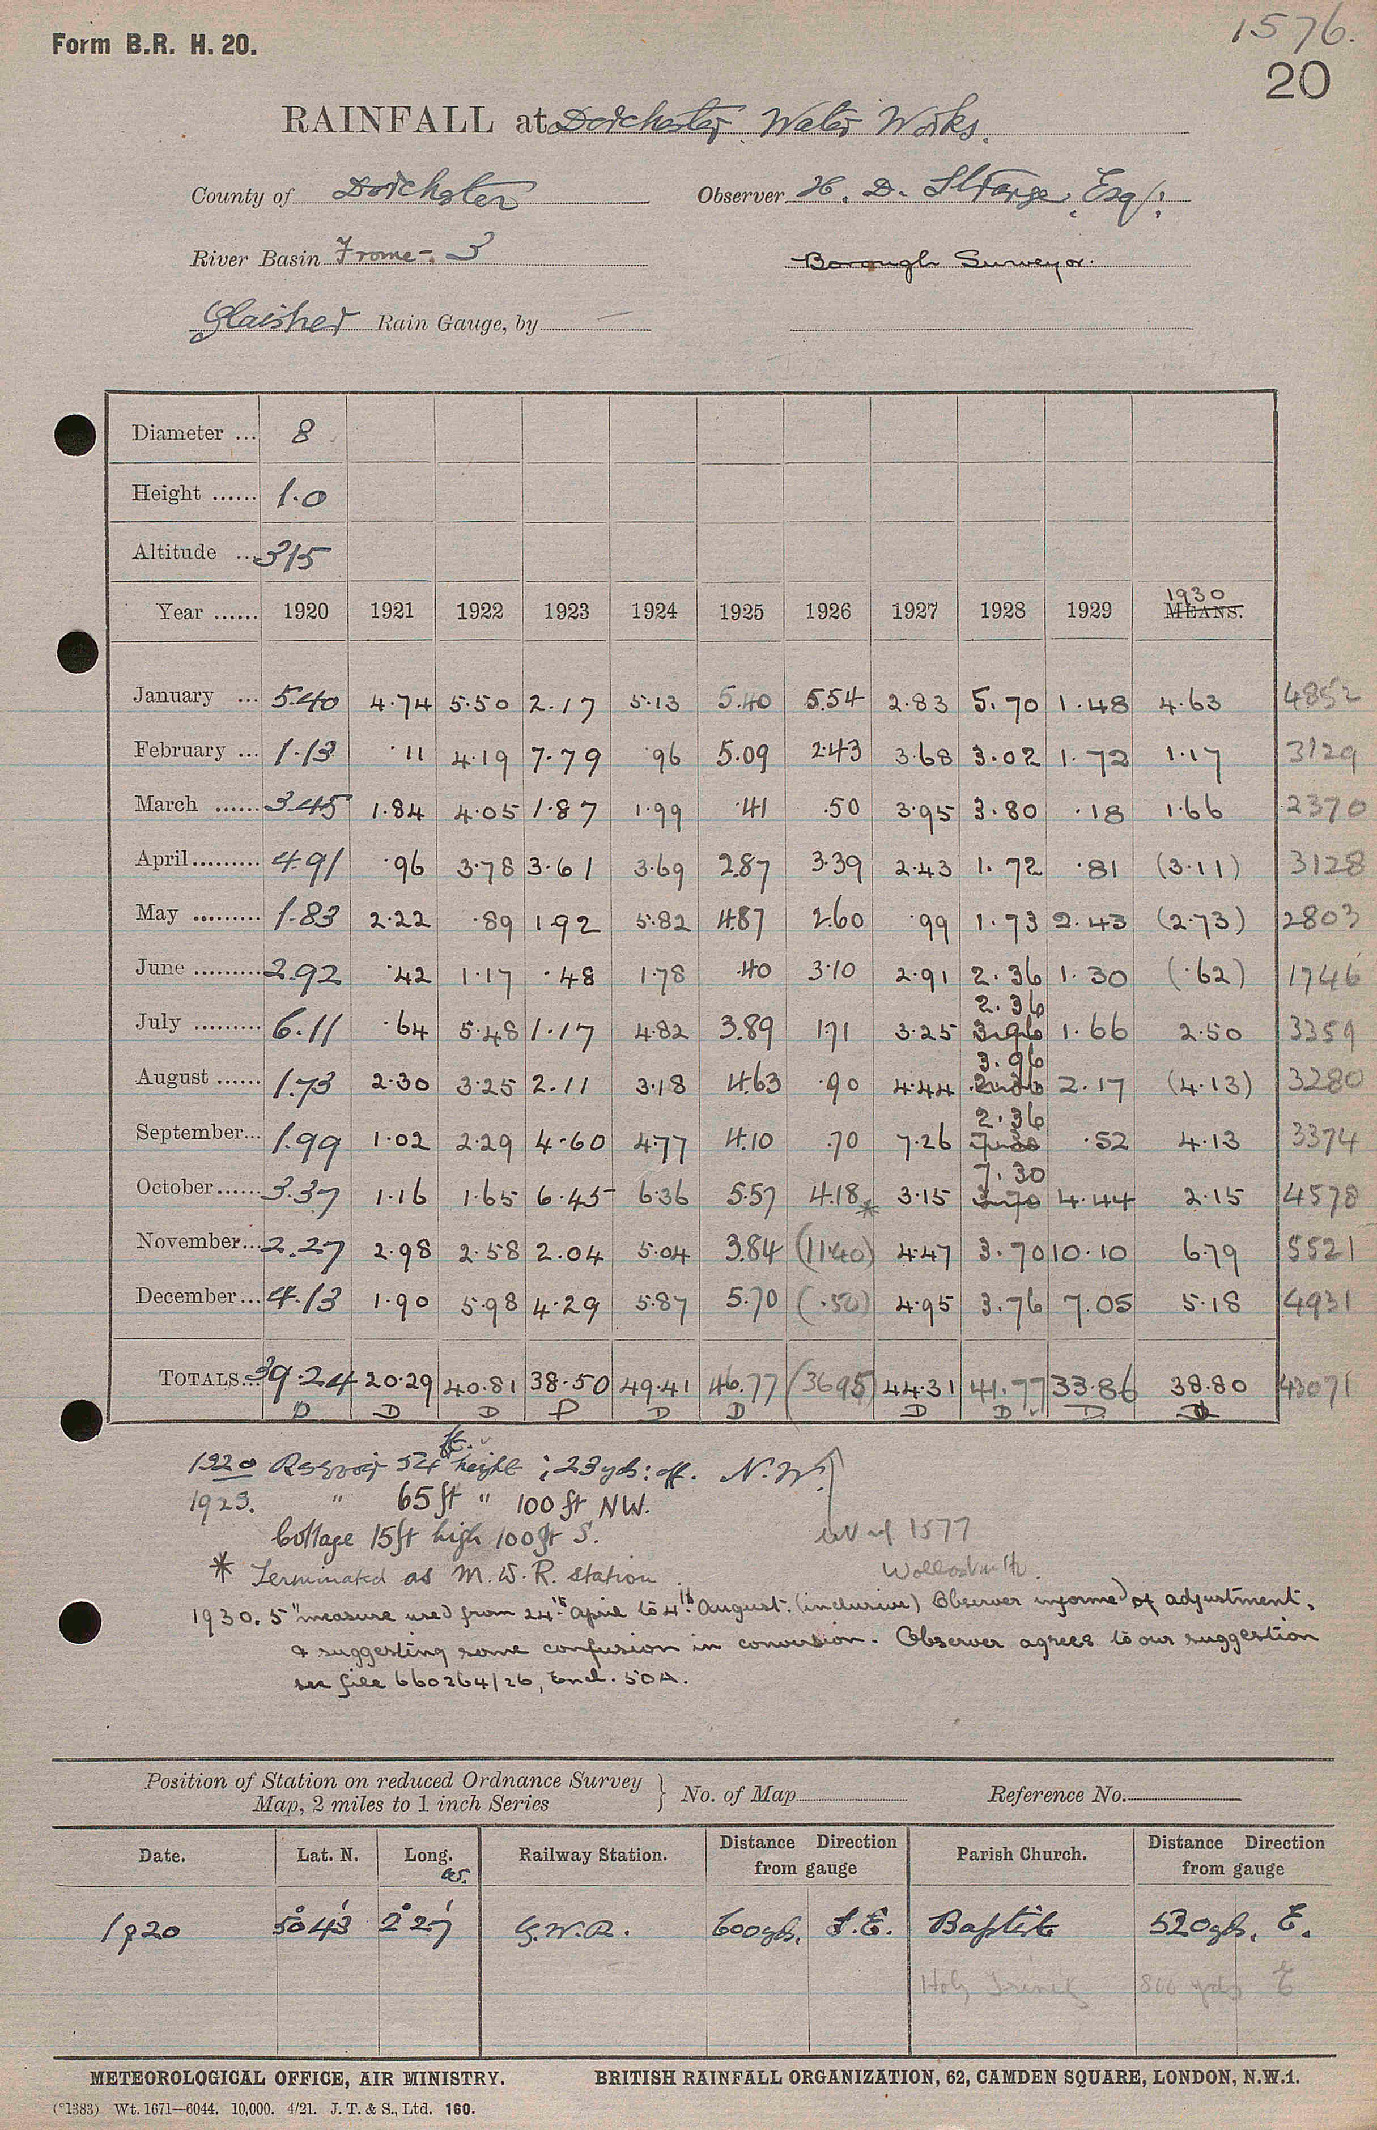 1576.
Form B.R. H. 20.
20
RAINFALL at Dorchester Water Works.
County of Dorchester Observer H. D. Esq.
River Basin Frome - 3 Borough Surveyor.
Glaisher Rain Gauge, by —
Diameter ... 8
Height ...... 1.0
Altitude ... 315
Year ...... 1920 1921 1922 1923 1924 1925 1926 1927 1928 1929 1930 MEANS.
January ... 5.40 4.74 5.50 2.17 5.13 5.40 5.54 2.83 5.70 1.48 4.63 4852
February ... 1.13 .11 4.19 7.79 .96 5.09 2.43 3.68 3.02 1.72 1.17 3129
March ...... 3.45 1.84 4.05 1.87 1.99 .41 .50 3.95 3.80 .18 1.66 2370
April......... 4.91 .96 3.78 3.61 3.69 2.87 3.39 2.43 1.72 .81 (3.11) 3128
May ......... 1.83 2.22 .89 1.92 5.82 4.87 2.60 .99 1.73 2.43 (2.73) 2803
June ......... 2.92 .42 1.17 .48 1.78 .40 3.10 2.91 2.36 1.30 (.62) 1746
July ......... 6.11 .64 5.48 1.17 4.82 3.89 1.71 3.25 2.36 3.96 1.66 2.50 3359
August ...... 1.73 2.30 3.25 2.11 3.18 4.63 .90 4.44 3.96 2.36 2.17 (4.13) 3280
September... 1.99 1.02 2.29 4.60 4.77 4.10 .70 7.26 2.36 7.30 .52 4.13 3374
October...... 3.37 1.16 1.65 6.45 6.36 5.57 4.18 * 3.15 7.30 3.70 4.44 2.15 4578
November... 2.27 2.98 2.58 2.04 5.04 3.84 (11.40) 4.47 3.70 10.10 6.79 5521
December... 4.13 1.90 5.98 4.29 5.87 5.70 (.50) 4.95 3.76 7.05 5.18 4931
TOTALS... 39.24 20.29 40.81 38.50 49.41 46.77 (36.95) 44.31 41.77 33.86 38.80 43071
D D D P D D D D D D
1920 Reservoir 54 ft. height ; 23 yds: off. N.W.
1923. " 65 ft " 100 ft NW.
Cottage 15ft high 100ft S. 1577
* Terminated as M.W.R. station.
1930. 5" measure used from 24th April to 4th August. (inclusive) Observer informed of adjustment,
& suggesting some confusion in conversion. Observer agrees to our suggestion
see file 660264/26, Encl. 50A.
Position of Station on reduced Ordnance Survey
Map, 2 miles to 1 inch Series } No. of Map Reference No.
Date. Lat. N. Long. W. Railway Station. Distance Direction from gauge Parish Church. Distance Direction from gauge
1920 50° 43' 2° 27' G.W.R. 600 yds. S.E. Baptist 520 yds. E.
Holy Trinity 800 yds E
METEOROLOGICAL OFFICE, AIR MINISTRY. BRITISH RAINFALL ORGANIZATION, 62, CAMDEN SQUARE, LONDON, N.W.1.
(*1383) Wt. 1671—6044. 10,000. 4/21. J. T. & S., Ltd. 160.